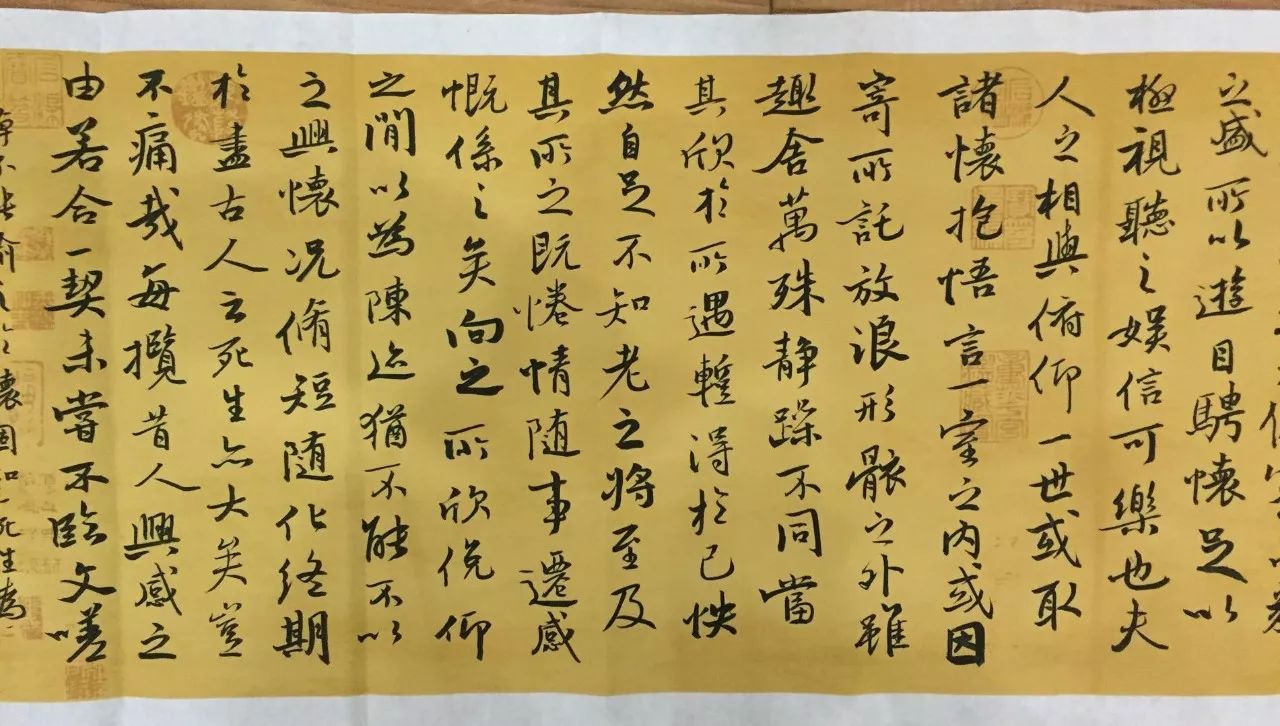 之盛所以遊目騁懷足以
極視聽之娛信可樂也夫
人之相與俯仰一世或取
諸懷抱悟言一室之內或因
寄所託放浪形骸之外雖
趣舍萬殊静躁不同當
其欣於所遇蹔得於己怏
然自足不知老之將至及
其所之既惓情随事遷感
慨係之矣向之所欣俛仰
之閒以為陳迹猶不能不以
之興懷況脩短随化終期
於盡古人云死生亦大矣豈
不痛哉每攬昔人興感之
由若合一契未嘗不臨文嗟
悼不能喻之於懷固知一死生為